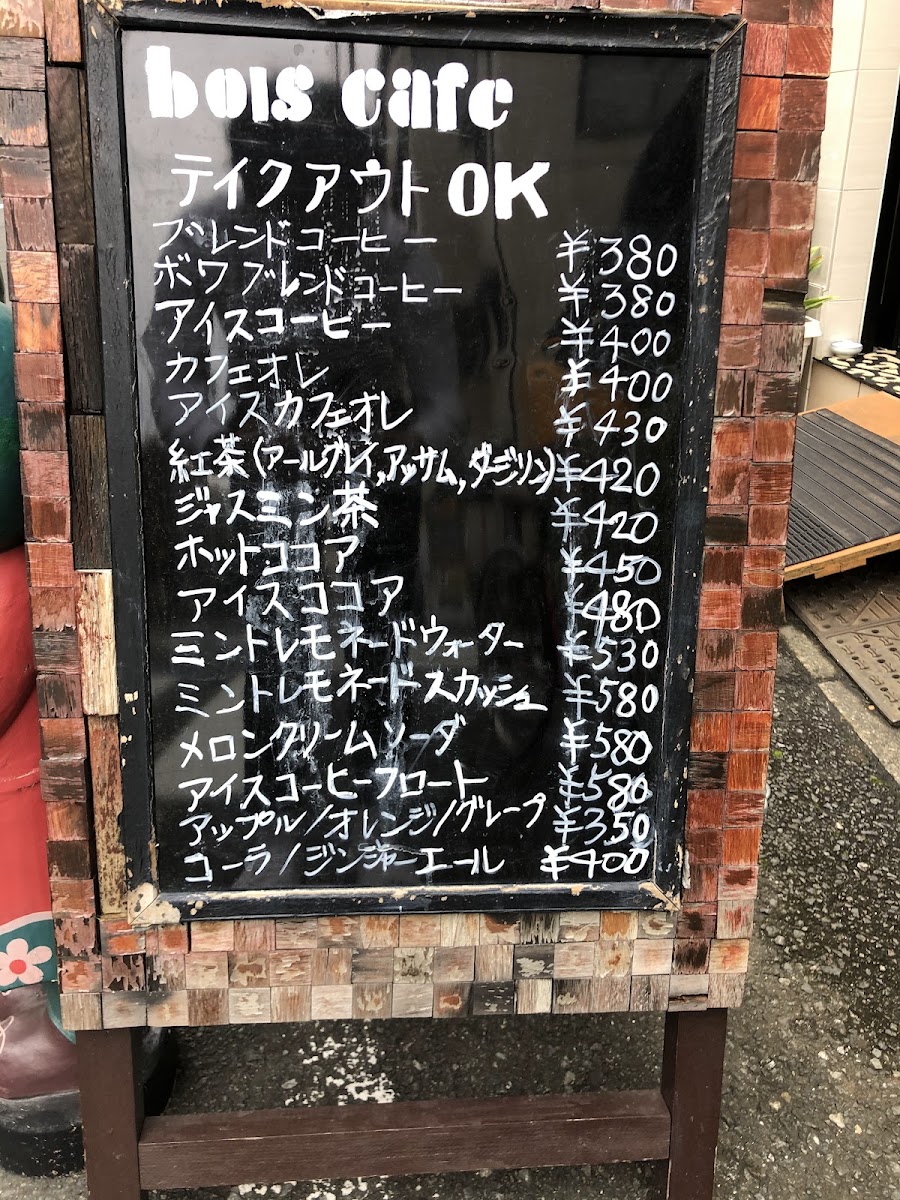 bois cafe
テイクアウトOK
ブレンドコーヒー ¥380
ボワブレンドコーヒー ¥380
アイスコーヒー ¥400
カフェオレ ¥400
アイスカフェオレ ¥430
紅茶(アールグレイ,アッサム,ダージリン) ¥420
ジャスミン茶 ¥420
ホットココア ¥450
アイスココア ¥480
ミントレモネードウォーター ¥530
ミントレモネードスカッシュ ¥580
メロンクリームソーダ ¥580
アイスコーヒーフロート ¥580
アップル/オレンジ/グレープ ¥350
コーラ/ジンジャーエール ¥400